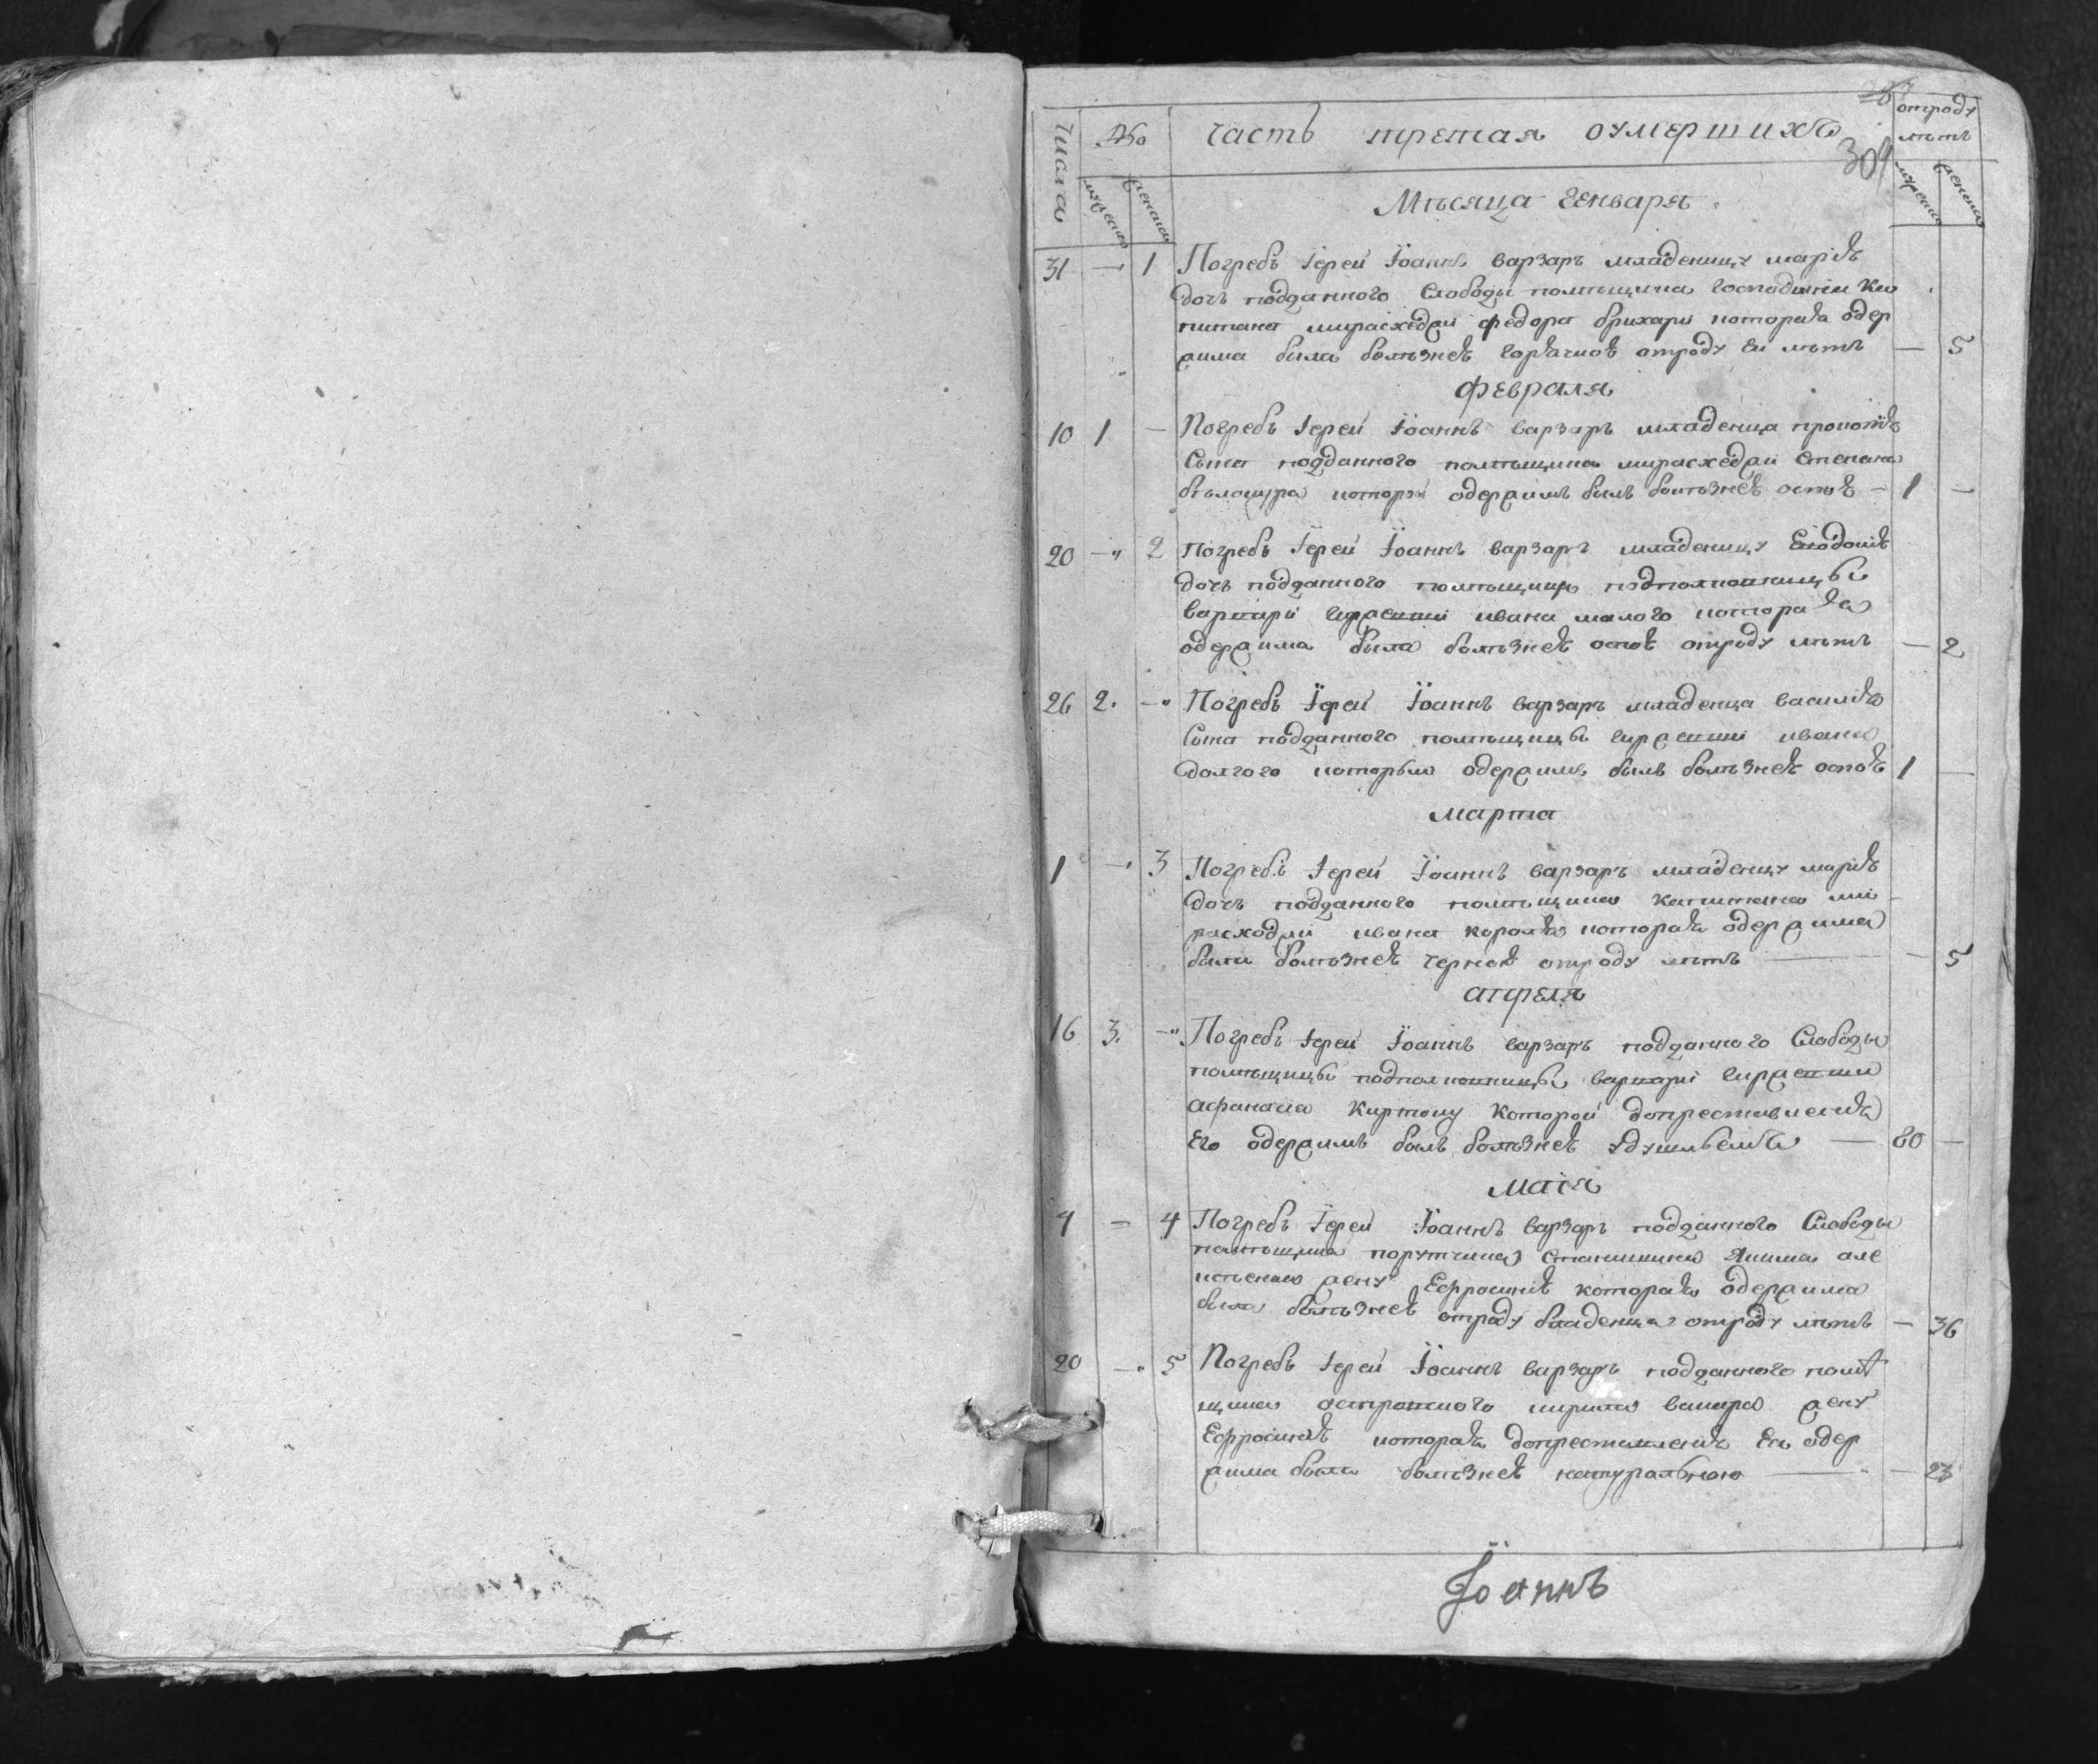 отродУ
Числа № Часть третая оумершихъ лѣтъ
304
мужеска женска Мѣсяца Генваря мужеска женска
31 — 1 Погребъ Іерей Іоаннъ варзаръ младеницу маріѣ
дочъ подданного Слободы помѣщика господина Ка
питана мирасхеджи федора одер
жима была болѣзнеѣ горѣчкоѣ отроду ей лѣтъ — 5
февраля
10 1 — Погребъ Іерей Іоаннъ варзаръ младенца
Сына подданного помѣщика мирасхеджи Степана
которій одержимъ былъ болѣзнеѣ оспоѣ — 1 —
20 — 2 Погребъ Іерей Іоаннъ варзаръ младеницу
дочъ подданного помѣщици подполковницы
ивана малого котораѣ
одержима была болѣзнеѣ оспоѣ отроду лѣтъ — 2
26 2. — Погребъ Іерей Іоаннъ варзаръ младенца василіѣ
Сына подданного помѣщицы ивана
долгого которым одержимъ былъ болѣзнеѣ оспоѣ 1 —
марта
1 — 3 Погребъ Іерей Іоаннъ варзаръ младеницу маріѣ
дочъ подданного помѣщика капитана ми
расходжи ивана королѣ котораѣ одержима
была болѣзнеѣ черноѣ отроду лѣтъ — — 5
апреля
16 3. — Погребъ Іерей Іоаннъ варзаръ подданного Слободы
помѣщицы подполковницы
афанасиа которой допреставлениѣ
Его одержимъ былъ болѣзнеѣ — 80 —
маія
4 — 4 Погребъ Іерей Іоаннъ варзаръ подданного Слободы
помѣщика порутчика Якима але
жену Ефросиніѣ котораѣ одержима
была болѣзнеѣ отроду отроду лѣтъ — 36
20 — 5 Погребъ Іерей Іоаннъ варзаръ подданного помѣ
щика кирила жену
Ефросиніѣ котораѣ допреставлениѣ Еѧ одер
жима была болѣзнеѣ натуральною — — 23
Іоаннъ